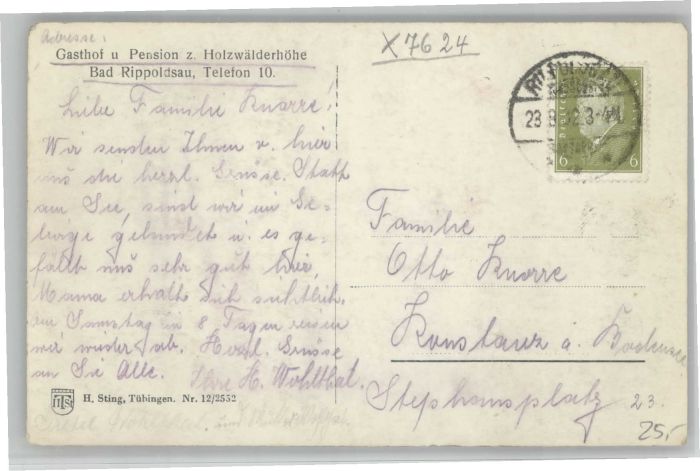 Adresse:
Gasthof u Pension z. Holzwälderhöhe
Bad Rippoldsau, Telefon 10.
Liebe Familie Knorre!
Wir senden Ihnen v. hier
aus die herzl. Grüsse. Statt
am See, sind wir im Ge-
birge gelandet u. es ge-
fällt uns sehr gut hier,
Mama erholt sich sichtlich.
am Samstag in 8 Tagen reisen
wir wieder ab. Herzl. Grüsse
an Sie Alle. Ihre H. Wohlthat.
HTS
H. Sting, Tübingen. Nr. 12/2552
X 7624
23 8 3-4
6 6
Familie
Otto Knorre
Konstanz a. Bodensee
Stephansplatz 23.
25,-